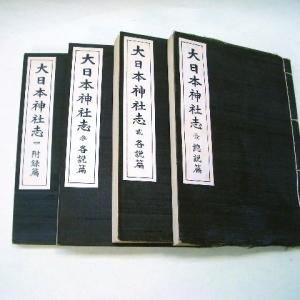 大日本神社志 壹 總説篇
大日本神社志 貳 各説篇
大日本神社志 參 各説篇
大日本神社志 附録篇